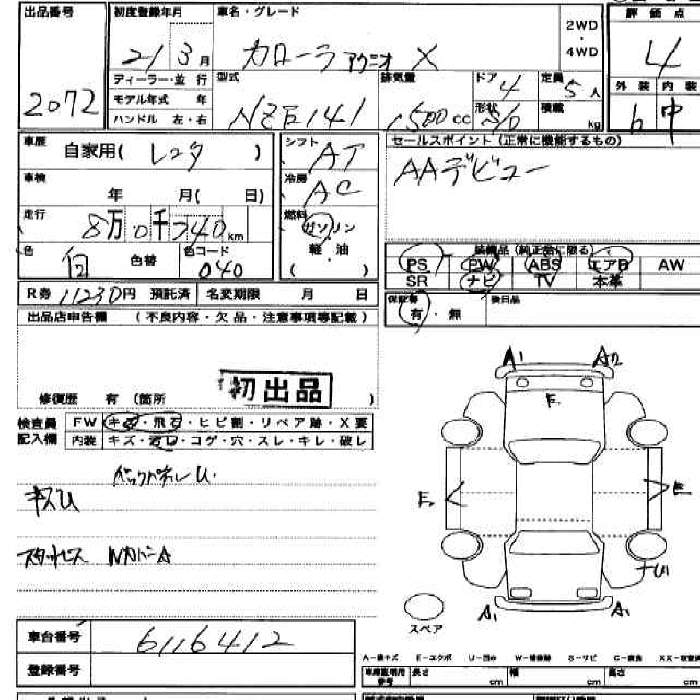 出品番号 初度登録年月 車名・グレード 2WD・4WD 評価点
2072 21 3月 カローラ アクシオ X 4
ディーラー・並行 型式 排気量 ドア 4 定員 5人 外装 内装
モデル年式 年 NZE141 1500cc 形状 積載 kg 6 中
ハンドル 左・右
車歴 自家用( レンタ ) シフト AT セールスポイント(正常に機能するもの)
車検 年 月( 日) 冷房 AC AAデビュー
走行 8万0千240km 燃料 ガソリン
色 白 色替 色コード 040 軽・油 ( )
装備品(純正品に限る)
PS PW ABS エアB AW
SR ナビ TV 本革
R券 11230円 預託済 名変期限 月 日 保証書 有・無 後日品
出品店申告欄 (不良内容・欠品・注意事項等記載)
初出品
修復歴 有(箇所 )
検査員記入欄 FW キズ・飛石・ヒビ割・リペア跡・X要
内装 キズ・汚れ・コゲ・穴・スレ・キレ・破レ
バックパネルU
キズU
A1 A2
E
E E
A1 A1
スペア
車台番号 6116412
登録番号
A-線キズ E-エクボ U-凹み
長さ cm 幅 cm 高さ cm